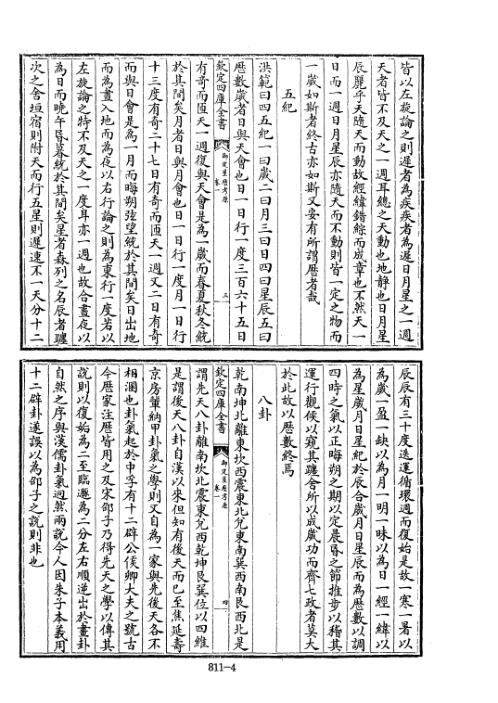 皆以左旋論之則遲者為疾疾者為遲日月星之一週
天者皆不及天之一週耳總之天動也地靜也日月星
辰麗乎天隨天而動故經緯錯綜而成章也不然天一
日而一週日月星辰亦隨天而不動則皆一定之物而
一歲如斯者終古亦如斯又安有所謂曆者哉
五紀
洪範曰四五紀一曰歲二曰月三曰日四曰星辰五曰
曆數歲者日與天會也日一日行一度三百六十五日
欽定四庫全書
御定星曆考原
卷一
三
有竒而匝天一週復與天會是為一歲而春夏秋冬統
於其間矣月者日與月會也日一日行一度月一日行
十三度有竒二十七日有竒而匝天一週又二日有竒
而與日會是為一月而晦朔弦望統於其間矣日出地
而為晝入地而為夜以右行論之則為東行一度若以
左旋論之特不及天之一度耳亦一週也故合晝夜以
為日而晚午昏暮統於其間矣星者森列之名辰者躔
次之舍垣宿則附天而行五星則遲速不一天分十二
辰辰有三十度迭運循環週而復始是故一寒一暑以
為歲一盈一缺以為月一明一昧以為日一經一緯以
為星歲月日星紀於辰合歲月日星辰而為曆數以調
四時之氣以正晦朔之期以定晨昏之節推步以稽其
運行觀候以窺其躔舍所以成歲功而齊七政者莫大
於此故以曆數終焉
八卦
乾南坤北離東坎西震東北兌東南巽西南艮西北是
欽定四庫全書
御定星曆考原
卷一
四
謂先天八卦離南坎北震東兌西乾坤艮巽位以四維
是謂後天八卦自漢以來但知有後天而巳至焦延壽
京房軰納甲卦氣之學則又自為一家與先後天各不
相涸也卦氣起於中孚有十二辟公侯卿大夫之號古
今曆家注曆皆用之及宋邵子乃得先天之學以傳其
說則以復姤為二至臨遯為二分左右順逆出於畫卦
自然之序與漢儒卦氣迥然兩說今人因朱子本義用
十二辟卦遂誤以為邵子之說則非也
811-4